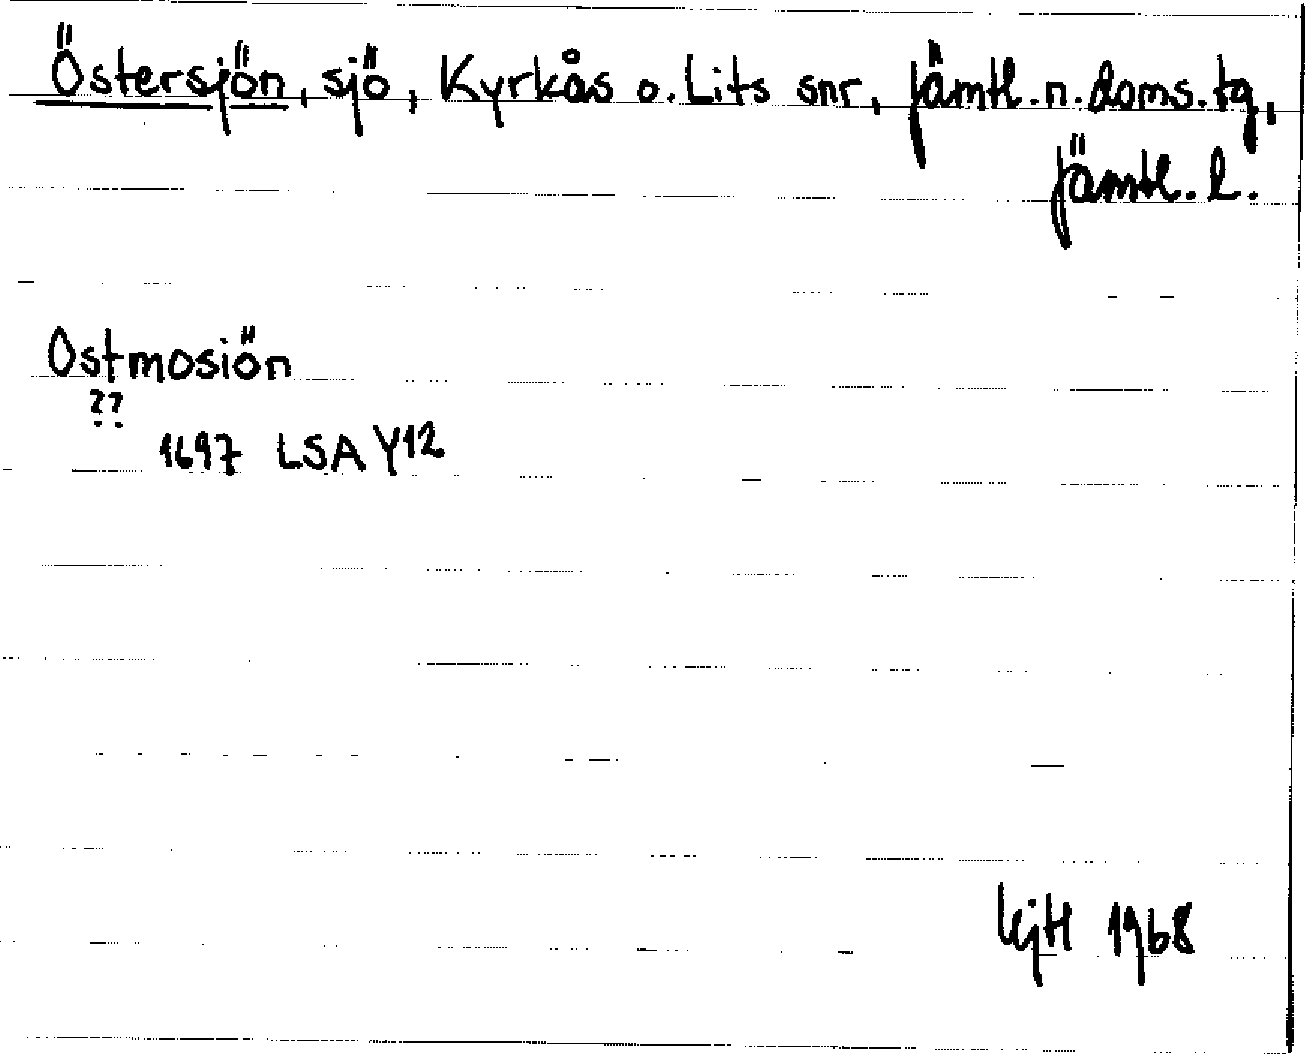 Östersjön, sjö, Kyrkås o. Lits snr, Jämtl. n. doms. tg,
Jämtl. l.
Ostmosiön
??
1697 LSA Y12
1968